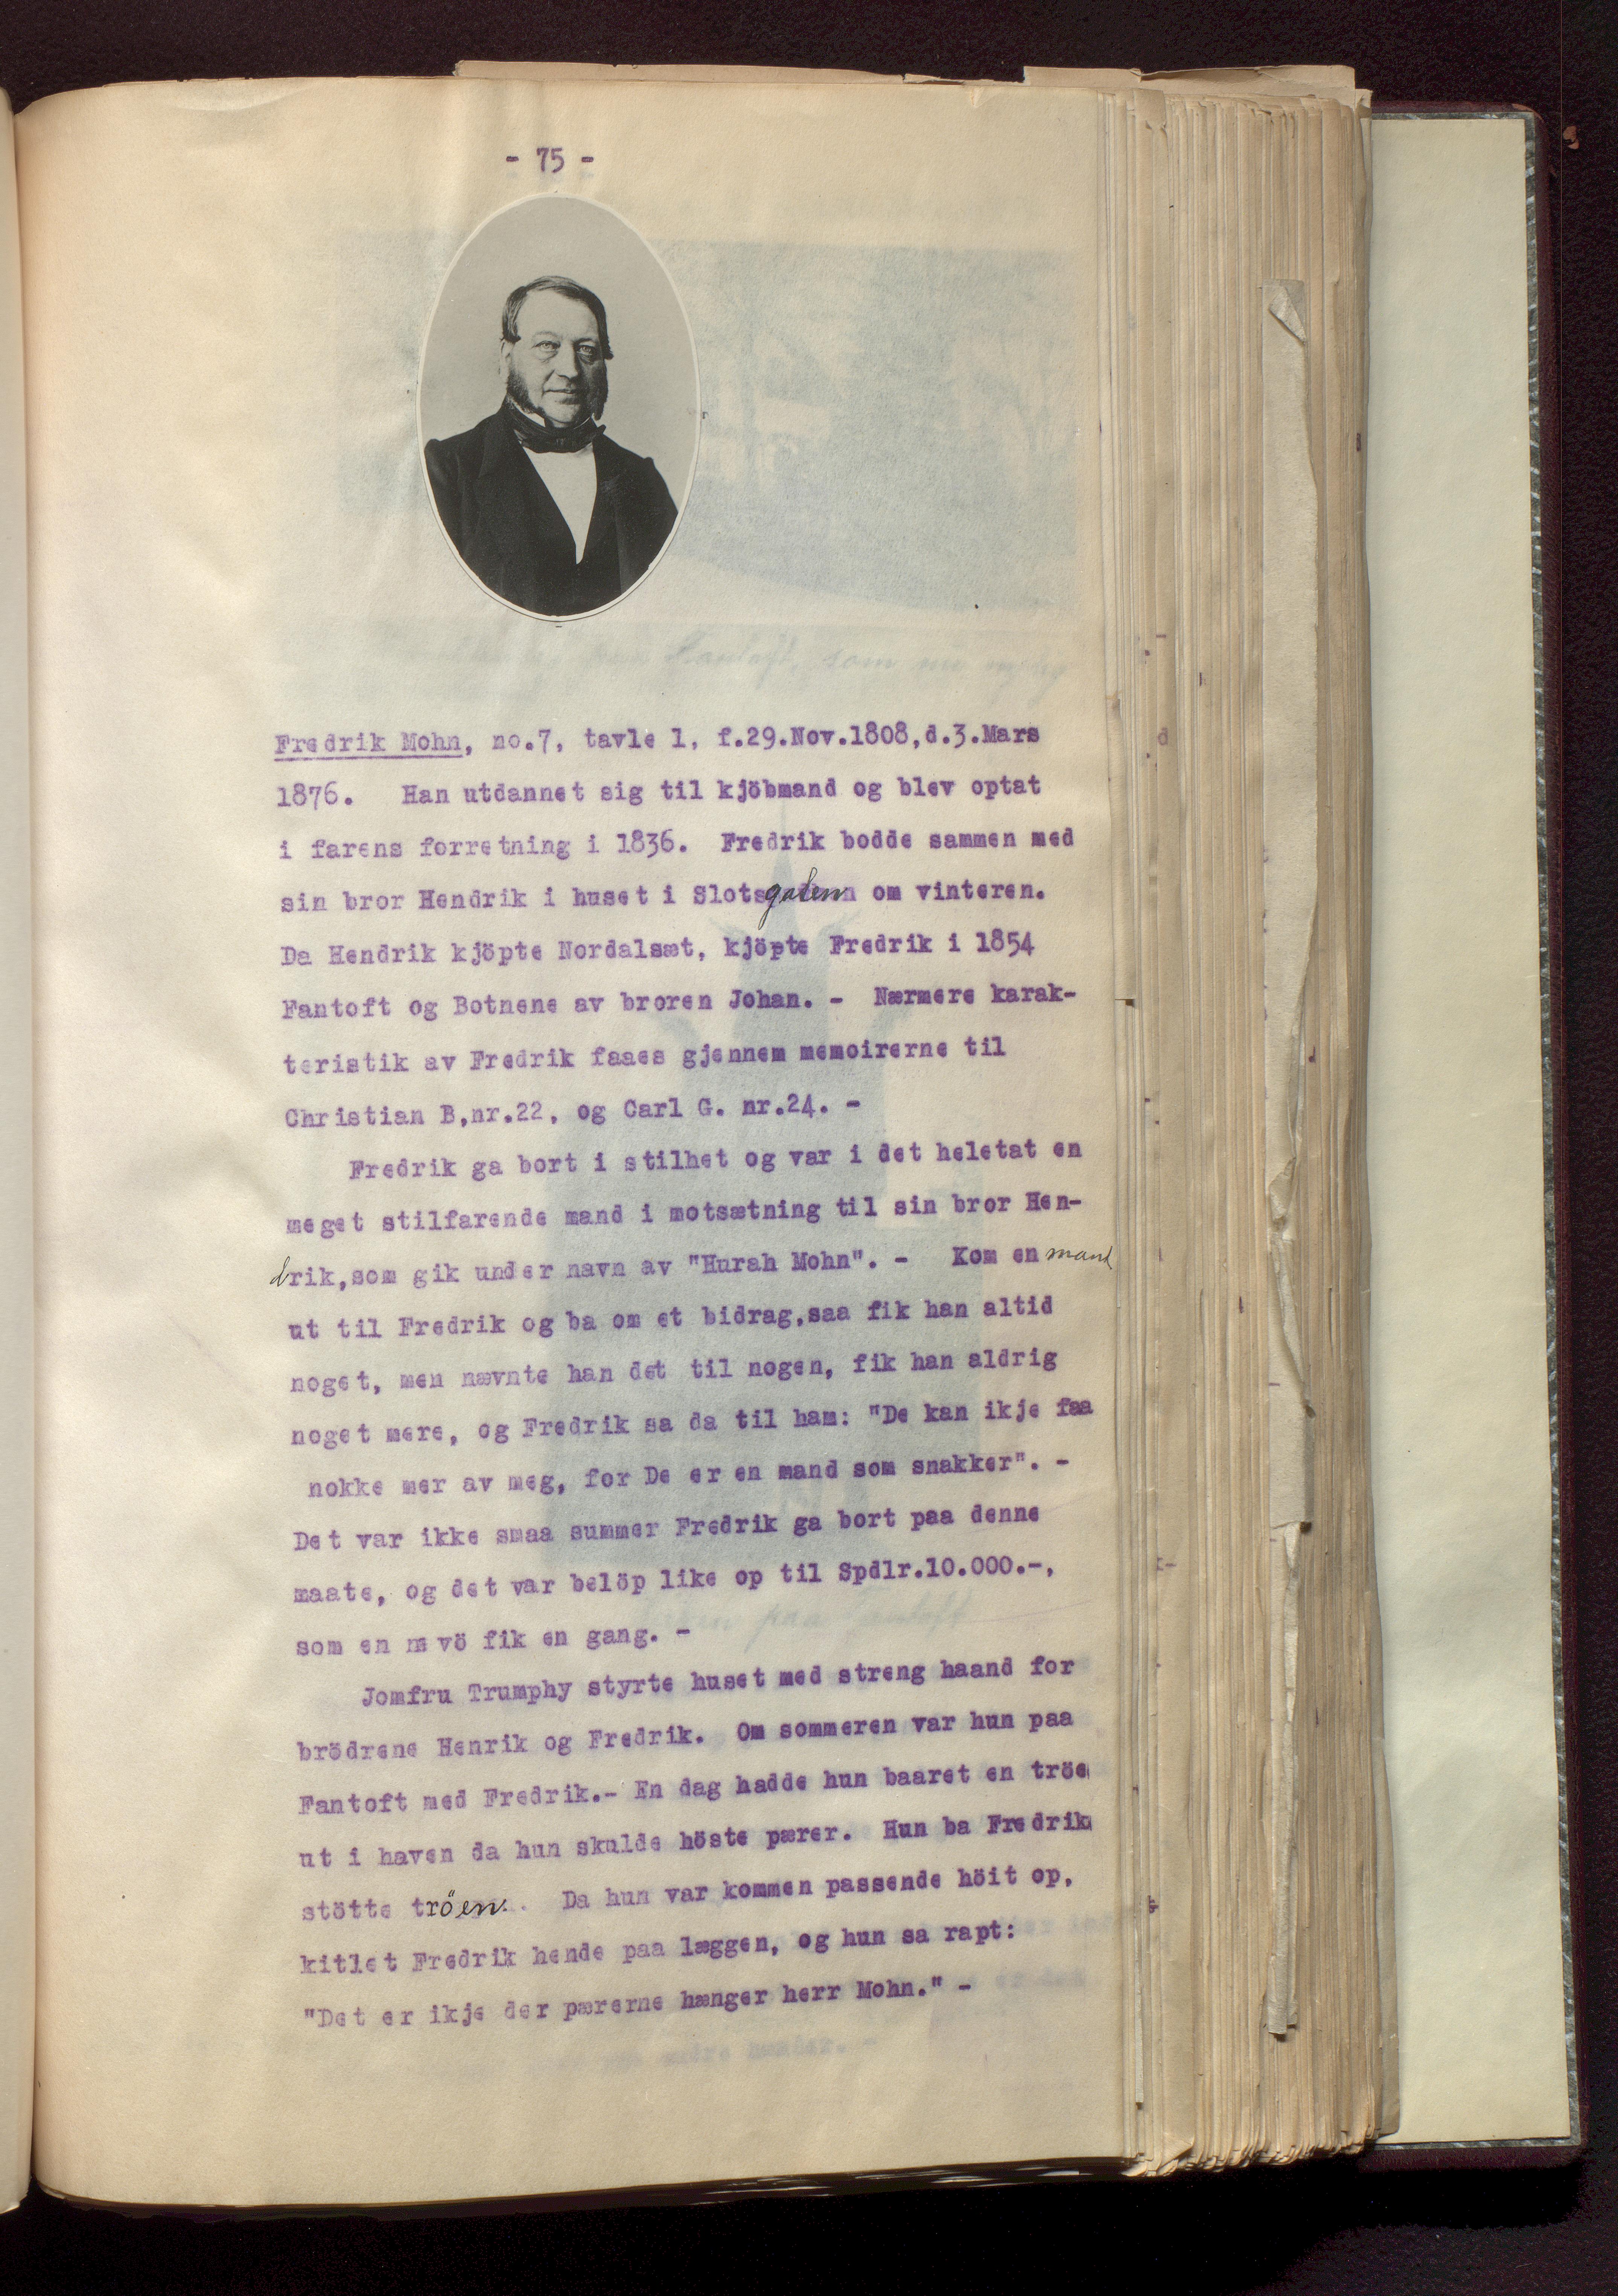 - 75 -
Fredrik Mohn, no.7, tavle 1, f.29.Nov.1808,d.3.Mars
1876. Han utdannet sig til kjöbmand og blev optat
i farens forretning i 1836. Fredrik bodde sammen med
sin bror Hendrik i huset i Slotsgaten om vinteren.
Da Hendrik kjöpte Nordalsæt, kjöpte Fredrik i 1854
Fantoft og Botnene av broren Johan. - Nærmere karak-
teristik av Fredrik faaes gjennem memoirerne til
Christian B,nr.22, og Carl G. nr.24. -
Fredrik ga bort i stilhet og var i det heletat en
meget stilfarende mand i motsætning til sin bror Hen-
drik,som gik under navn av "Hurah Mohn". - Kom en mand
ut til Fredrik og ba om et bidrag,saa fik han altid
noget, men nævnte han det til nogen, fik han aldrig
noget mere, og Fredrik sa da til ham: "De kan ikje faa
nokke mer av meg, for De er en mand som snakker". -
Det var ikke smaa summer Fredrik ga bort paa denne
maate, og det var belöp like op til Spdlr.10.000.-,
som en nevö fik en gang. -
Jomfru Trumphy styrte huset med streng haand for
brödrene Henrik og Fredrik. Om sommeren var hun paa
Fantoft med Fredrik.- En dag hadde hun baaret en tröe
ut i haven da hun skulde höste pærer. Hun ba Fredrik
stötte tröen. Da hun var kommen passende höit op,
kitlet Fredrik hende paa læggen, og hun sa rapt:
"Det er ikje der pærerne hænger herr Mohn." -